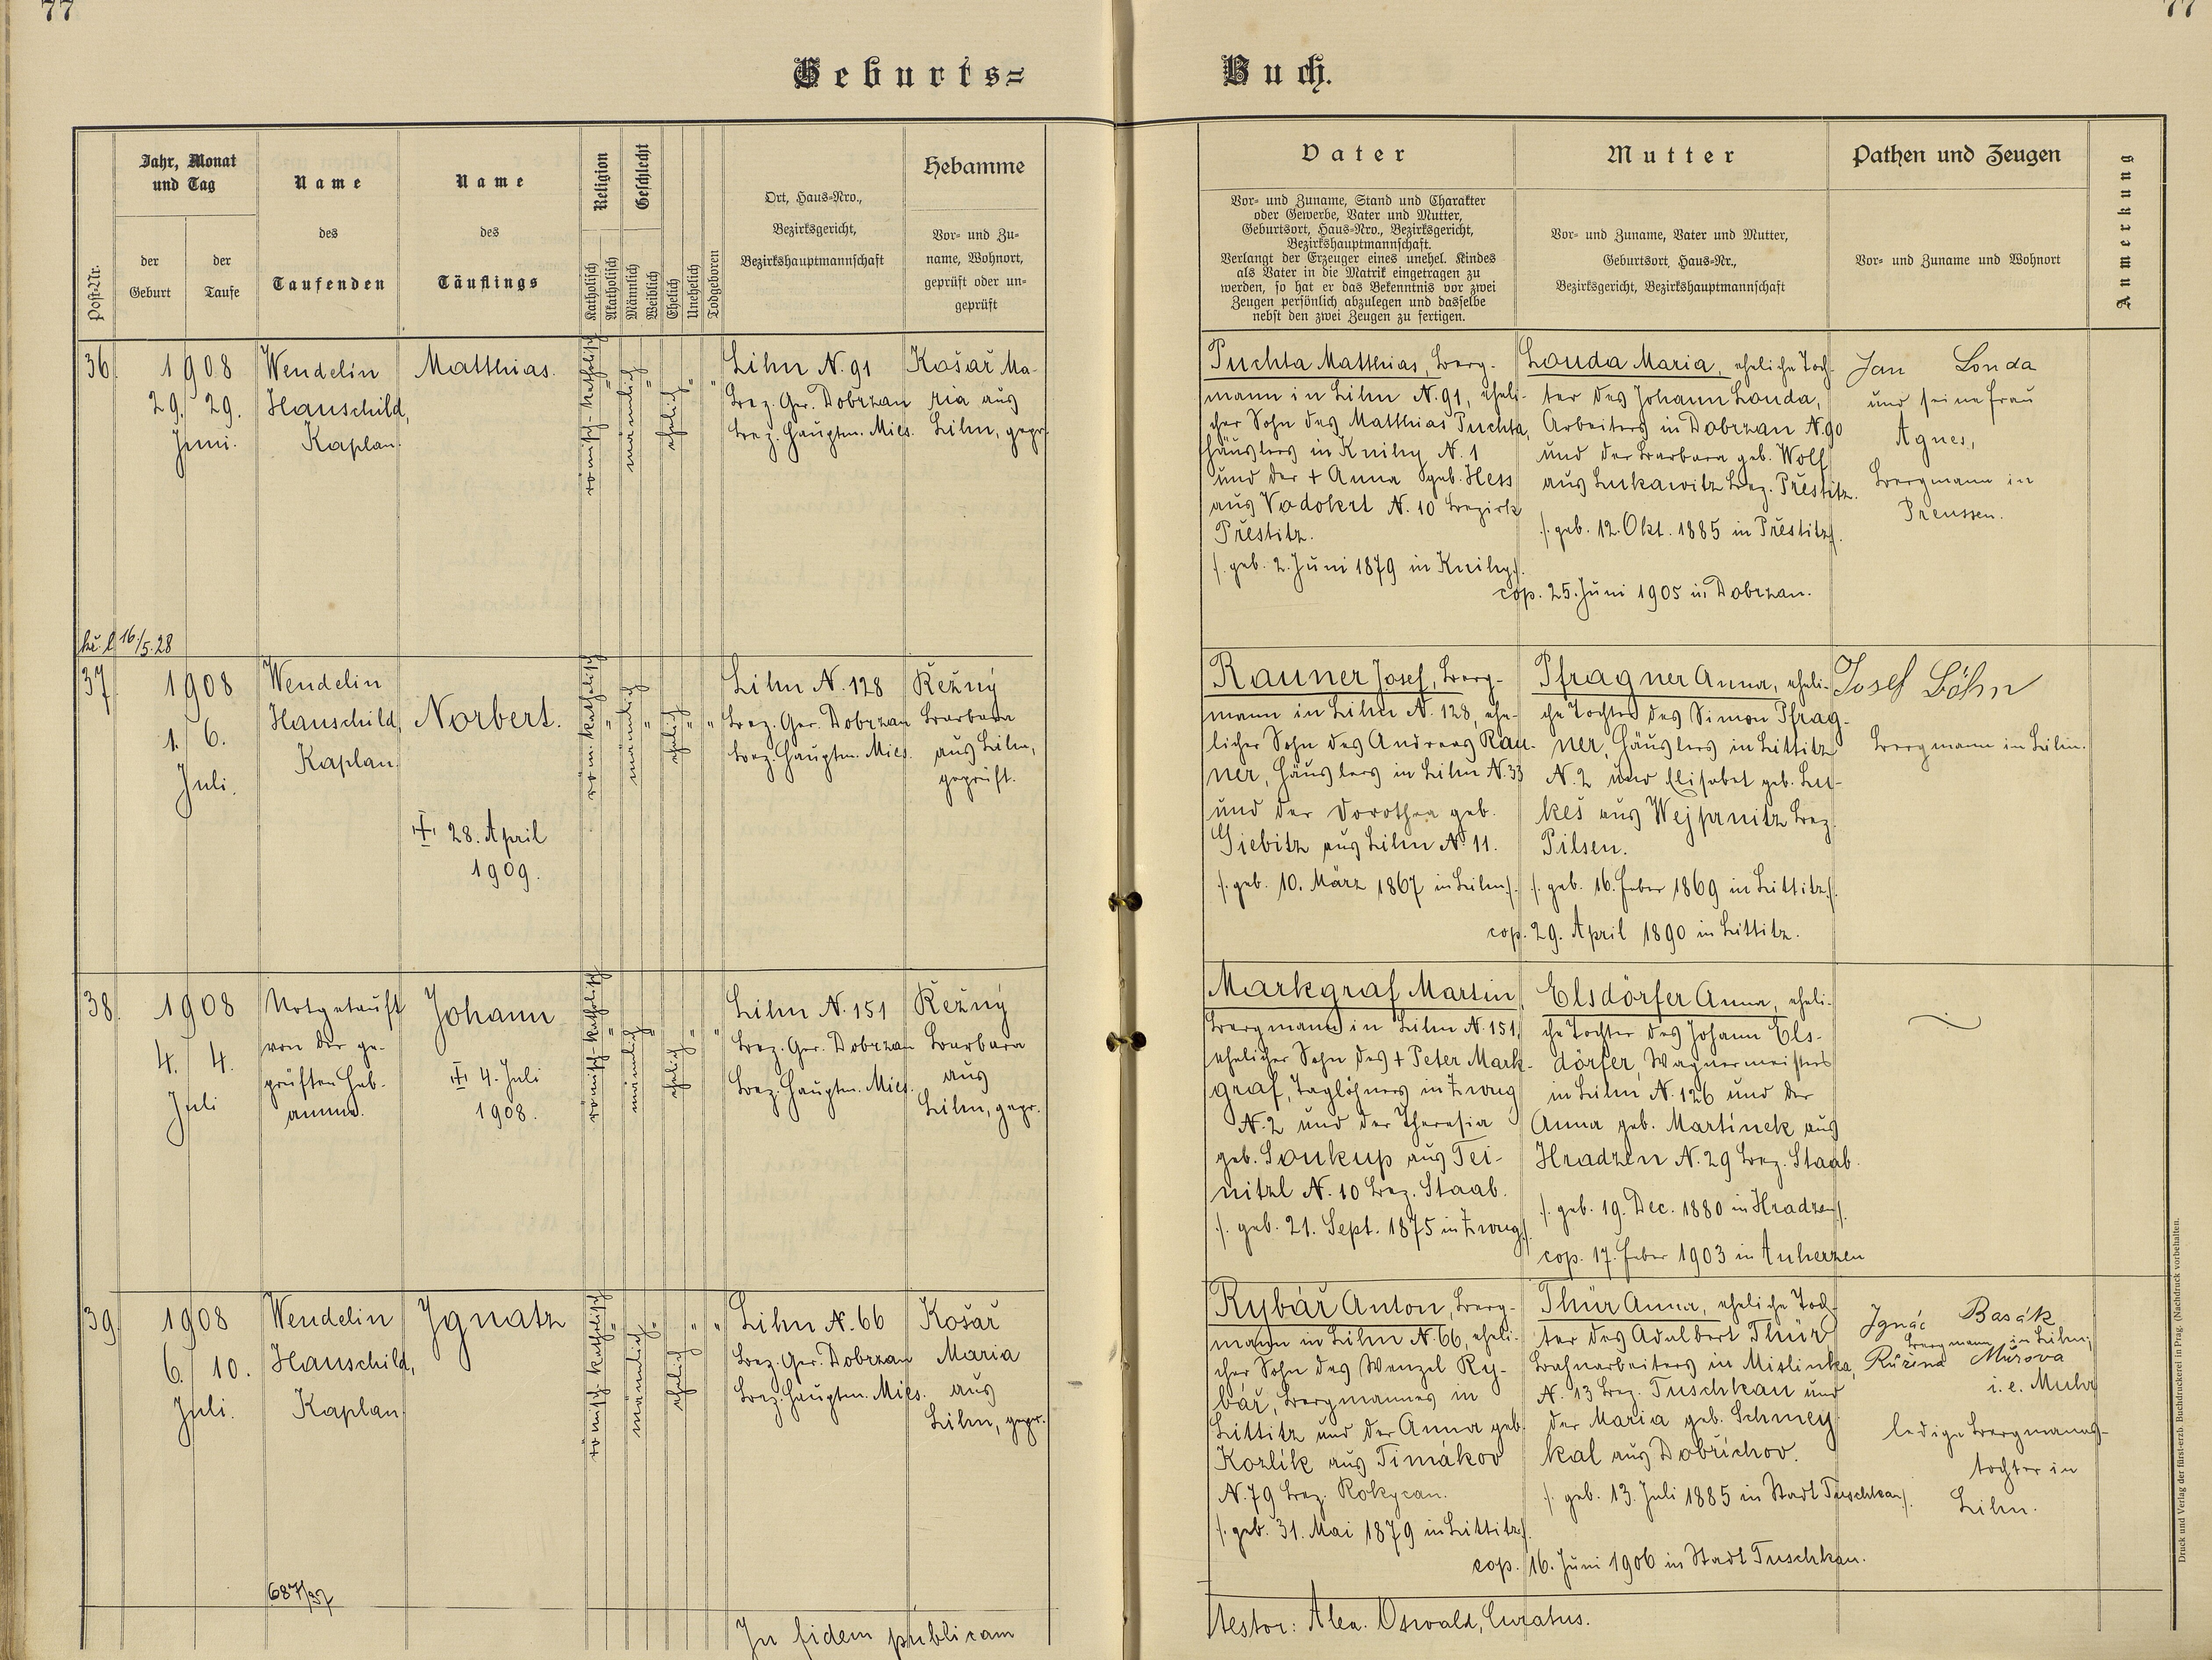 77
77
Geburts=
Buch.
Post-Nr.
Jahr, Monat
und Tag
der
Geburt
der
Taufe
Name
des
Taufenden
Name
des
Täuflings
Religion
Katholisch
Akatholisch
Geschlecht
Männlich
Weiblich
Ehelich
Unehelich
Todgeboren
Ort, Haus=Nro.,
Bezirksgericht,
Bezirkshauptmannschaft
Hebamme
Vor= und Zu=
name, Wohnort,
geprüft oder un=
geprüft
Vater
Vor= und Zuname, Stand und Charakter
oder Gewerbe, Vater und Mutter,
Geburtsort, Haus=Nro., Bezirksgericht,
Bezirkshauptmannschaft.
Verlangt der Erzeuger eines unehel. Kindes
als Vater in die Matrik eingetragen zu
werden, so hat er das Bekenntnis vor zwei
Zeugen persönlich abzulegen und dasselbe
nebst den zwei Zeugen zu fertigen.
Mutter
Vor= und Zuname, Vater und Mutter,
Geburtsort, Haus=Nr.,
Bezirksgericht, Bezirkshauptmannschaft
Pathen und Zeugen
Vor= und Zuname und Wohnort
Anmerkung
36.
1908
29. 29.
Juni.
Wendelin
Hauschild,
Kaplan.
Matthias.
römisch-katholisch
"
männlich
"
ehelich
"
"
Lihn N. 91
Bez. Ger. Dobrzan
Bez. Hauptm. Mies.
Košař Ma-
ria aus
Lihn, gepr.
Puchta Matthias, Berg-
mann in Lihn N. 91, eheli-
cher Sohn des Matthias Puchta,
Häuslers in Knihy N. 1
und der + Anna geb. Hess
aus Vodokrt N. 10 Bezirk
Přestitz.
/. geb. 2. Juni 1879 in Knihy/.
Louda Maria, eheliche Toch-
ter des Johann Louda,
Arbeiters in Dobrzan N. 90
und der Barbara geb. Wolf
aus Lukawitz Bez. Přestitz.
/. geb. 12. Okt. 1885 in Přestitz/.
cop. 25. Juni 1905 in Dobrzan.
Jan Louda
und seine Frau
Agnes,
Bergmann in
Preussen.
16./5. 28
37.
1908
1. 6.
Juli.
Wendelin
Hauschild,
Kaplan.
Norbert.
‡ 28. April
1909.
röm. katholisch
"
männlich
"
ehelich
"
"
Lihn N. 128
Bez. Ger. Dobrzan
Bez. Hauptm. Mies.
Řežný
Barbara
aus Lihn,
geprüft.
Rauner Josef, Berg-
mann in Lihn N. 128, ehe-
licher Sohn des Andreas Rau-
ner, Häuslers in Lihn N. 33
und der Dorothea geb.
Giebitz aus Lihn N. 11.
/. geb. 10. März 1867 in Lihn/.
Pfragner Anna, eheli-
che Tochter des Simon Pfrag-
ner, Häuslers in Littitz
N. 2 und Elisabet geb. Lu-
keš aus Wejprnitz Bez.
Pilsen.
/. geb. 16. Feber 1869 in Littitz/.
cop. 29. April 1890 in Littitz.
Josef Böhm
Bergmann in Lihn.
38.
1908
4. 4.
Juli
Notgetauft
von der ge-
prüften Heb-
amme.
Johann
‡ 4. Juli
1908.
römisch-katholisch
"
männlich
"
ehelich
"
"
Lihn N. 151
Bez. Ger. Dobrzan
Bez. Hauptm. Mies.
Řežný
Barbara
aus
Lihn, gepr.
Markgraf Martin,
Bergmann in Lihn N. 151,
ehelicher Sohn des + Peter Mark-
graf, Taglöhners in Zwug
N. 2 und der Theresia
geb. Soukup aus Tei-
nitzl N. 10 Bez. Staab.
/. geb. 21. Sept. 1875 in Zwug/.
Elsdörfer Anna, eheli-
che Tochter des Johann Els-
dörfer, Wagnermeisters
in Lihn N. 126 und der
Anna geb. Martínek aus
Hradzen N. 29 Bez. Staab.
/. geb. 19. Dec. 1880 in Hradzen/.
cop. 17. Feber 1903 in Auherzen
39.
1908
6. 10.
Juli.
Wendelin
Hauschild,
Kaplan.
Ignatz
römisch-katholisch
"
männlich
"
ehelich
"
"
Lihn N. 66
Bez. Ger. Dobrzan
Bez. Hauptm. Mies.
Košař
Maria
aus
Lihn, gepr.
Rybář Anton, Berg-
mann in Lihn N. 66, eheli-
cher Sohn des Wenzel Ry-
bář, Bergmannes in
Littitz und der Anna geb.
Kozlík aus Timákov
N. 79 Bez. Rokycan.
/. geb. 31. Mai 1879 in Littitz/.
Thür Anna, eheliche Toch-
ter des Adalbert Thür
Bahnarbeiters in Mislinka,
N. 13 Bez. Tuschkau und
der Maria geb. Schmey-
kal aus Dobřichov.
/. geb. 13. Juli 1885 in Stadt Tuschkau/.
cop. 16. Juni 1906 in Stadt Tuschkau.
Ignác Basák
Bergmann in Lihn;
Růžena Můrova
i. e. Muhr
ledige Bergmanns-
tochter in
Lihn.
687/37
In fidem publicam
Testor: Alex. Oswald, Curatus.
Druck und Verlag der fürst-erzb. Buchdruckerei in Prag. (Nachdruck vorbehalten.